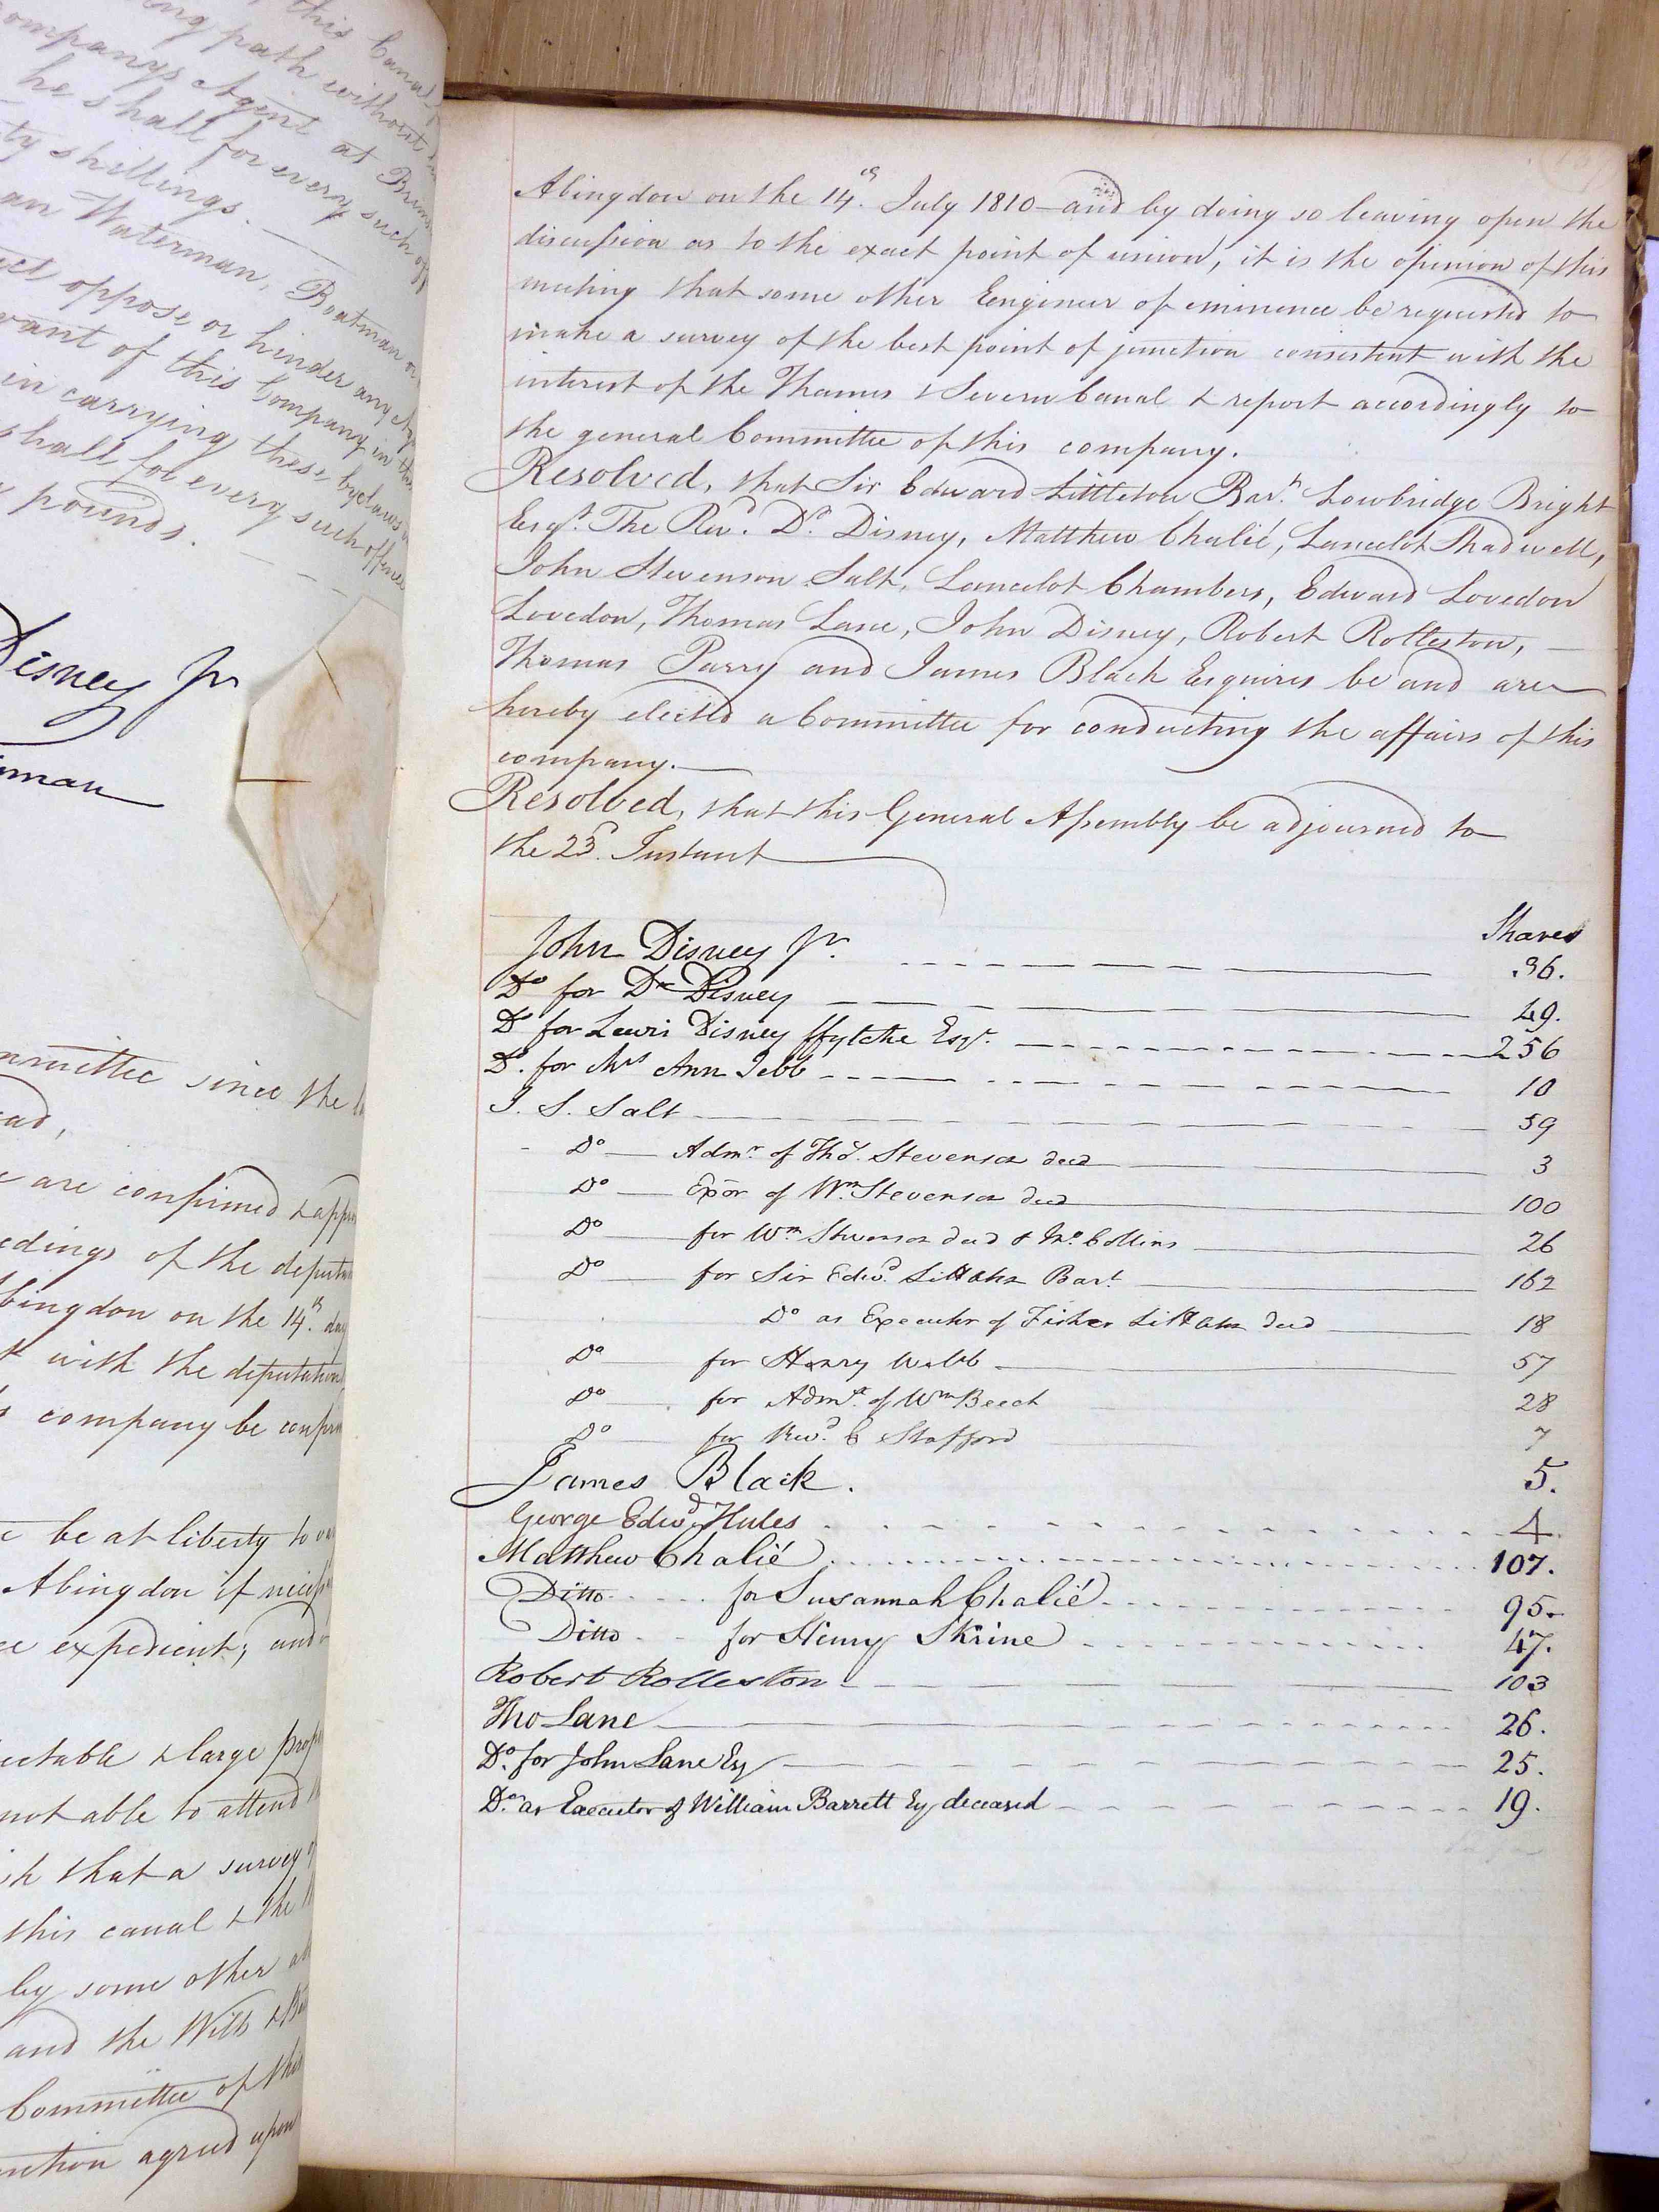 this Canal
ing path without
ompanys Agent at Brim
he shall for every such off
ty shillings.
an Waterman, Boatman or
ect oppose or hinder any
vant of this Company in the
in carrying these byelaws
shall for every such offence
pounds.
Disney Jr
man
mmittee since the
ad,
are confirmed & appro
edings of the deputa
bingdon on the 14th. day
with the deputation
company be confir
be at liberty to
Abingdon if necess
expedient; and
ectable & large prop
not able to attend
that a survey
this canal & the
by some other
and the Wilts & Be
Committee of this
agreed upon
Abingdon on the 14th. July 1810 and by doing so leaving open the
discussion as to the exact point of union, it is the opinion of this
meeting that some other Eengineer of eminence be requested to
make a survey of the best point of junction consistent with the
interest of the Thames & Severn Canal & report accordingly to
the general Committee of this company.
Resolved, that Sir Edward Littleton Bart. Lowbridge Bright
Esqr. The Revd. Dr. Disney, Matthew Chalié, Lancelot Shadwell,
John Stevenson Salt, Lancelot Chambers, Edward Lovedon
Lovedon, Thomas Lane, John Disney, Robert Rolleston,
Thomas Parry and James Black Esquires be and are
hereby elected a Committee for conducting the affairs of this
company.
Resolved, that this General Assembly be adjourned to
the 23d. Instant
Shares
John Disney Jr. 36.
Do for Dr Disney 49.
Do for Lewis Disney ffytche Esqr. 256
Do. for Mrs Ann Jebb 10
J. S. Salt 59
Do Admr. of Thos. Stevenson decd 3
Do Exor of Wm. Stevenson decd 100
Do for Wm Stevenson decd & Jno. Collins 26
Do for Sir Edwd. Littleton Bart. 162
Do as Executor of Fisher Littleton decd 18
Do for Henry Webb 57
Do for Admx. of Wm Beech 28
Do for Revd. C Stafford 7
James Black. 5.
George Edwd Hules 4.
Matthew Chalié 107.
Ditto for Susannah Chalié 95.
Ditto for Henry Skrine 47.
Robert Rolleston 103
Tho Lane 26.
Do. for John Lane Esq 25.
Do. as Executor of William Barrett Esq deceased 19.